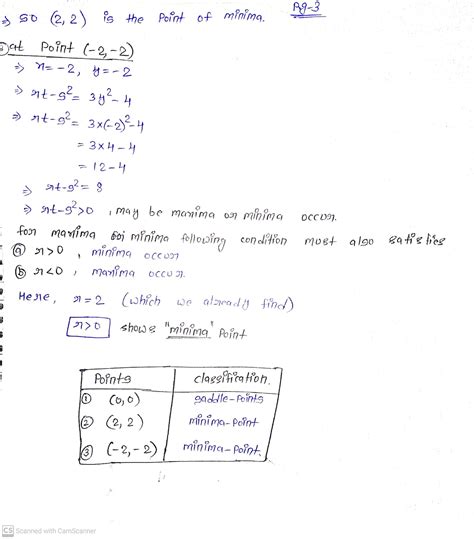 Pg-3
⇒ so (2, 2) is the point of minima.
③ at Point (-2, -2)
⇒ x = -2, y = -2
⇒ rt-s² = 3y² - 4
⇒ rt-s² = 3×(-2)² - 4
= 3×4 - 4
= 12 - 4
⇒ rt-s² = 8
⇒ rt-s² > 0 , may be maxima or minima occur.
for maxima for minima following condition must also satisfies
ⓐ r>0 , minima occur
ⓑ r<0 , maxima occur.
Here, r = 2 (which we already find)
r>0 shows "minima" Point
Points classification.
① (0, 0) saddle-points
② (2, 2) minima-point
③ (-2, -2) minima-point.
CS Scanned with CamScanner